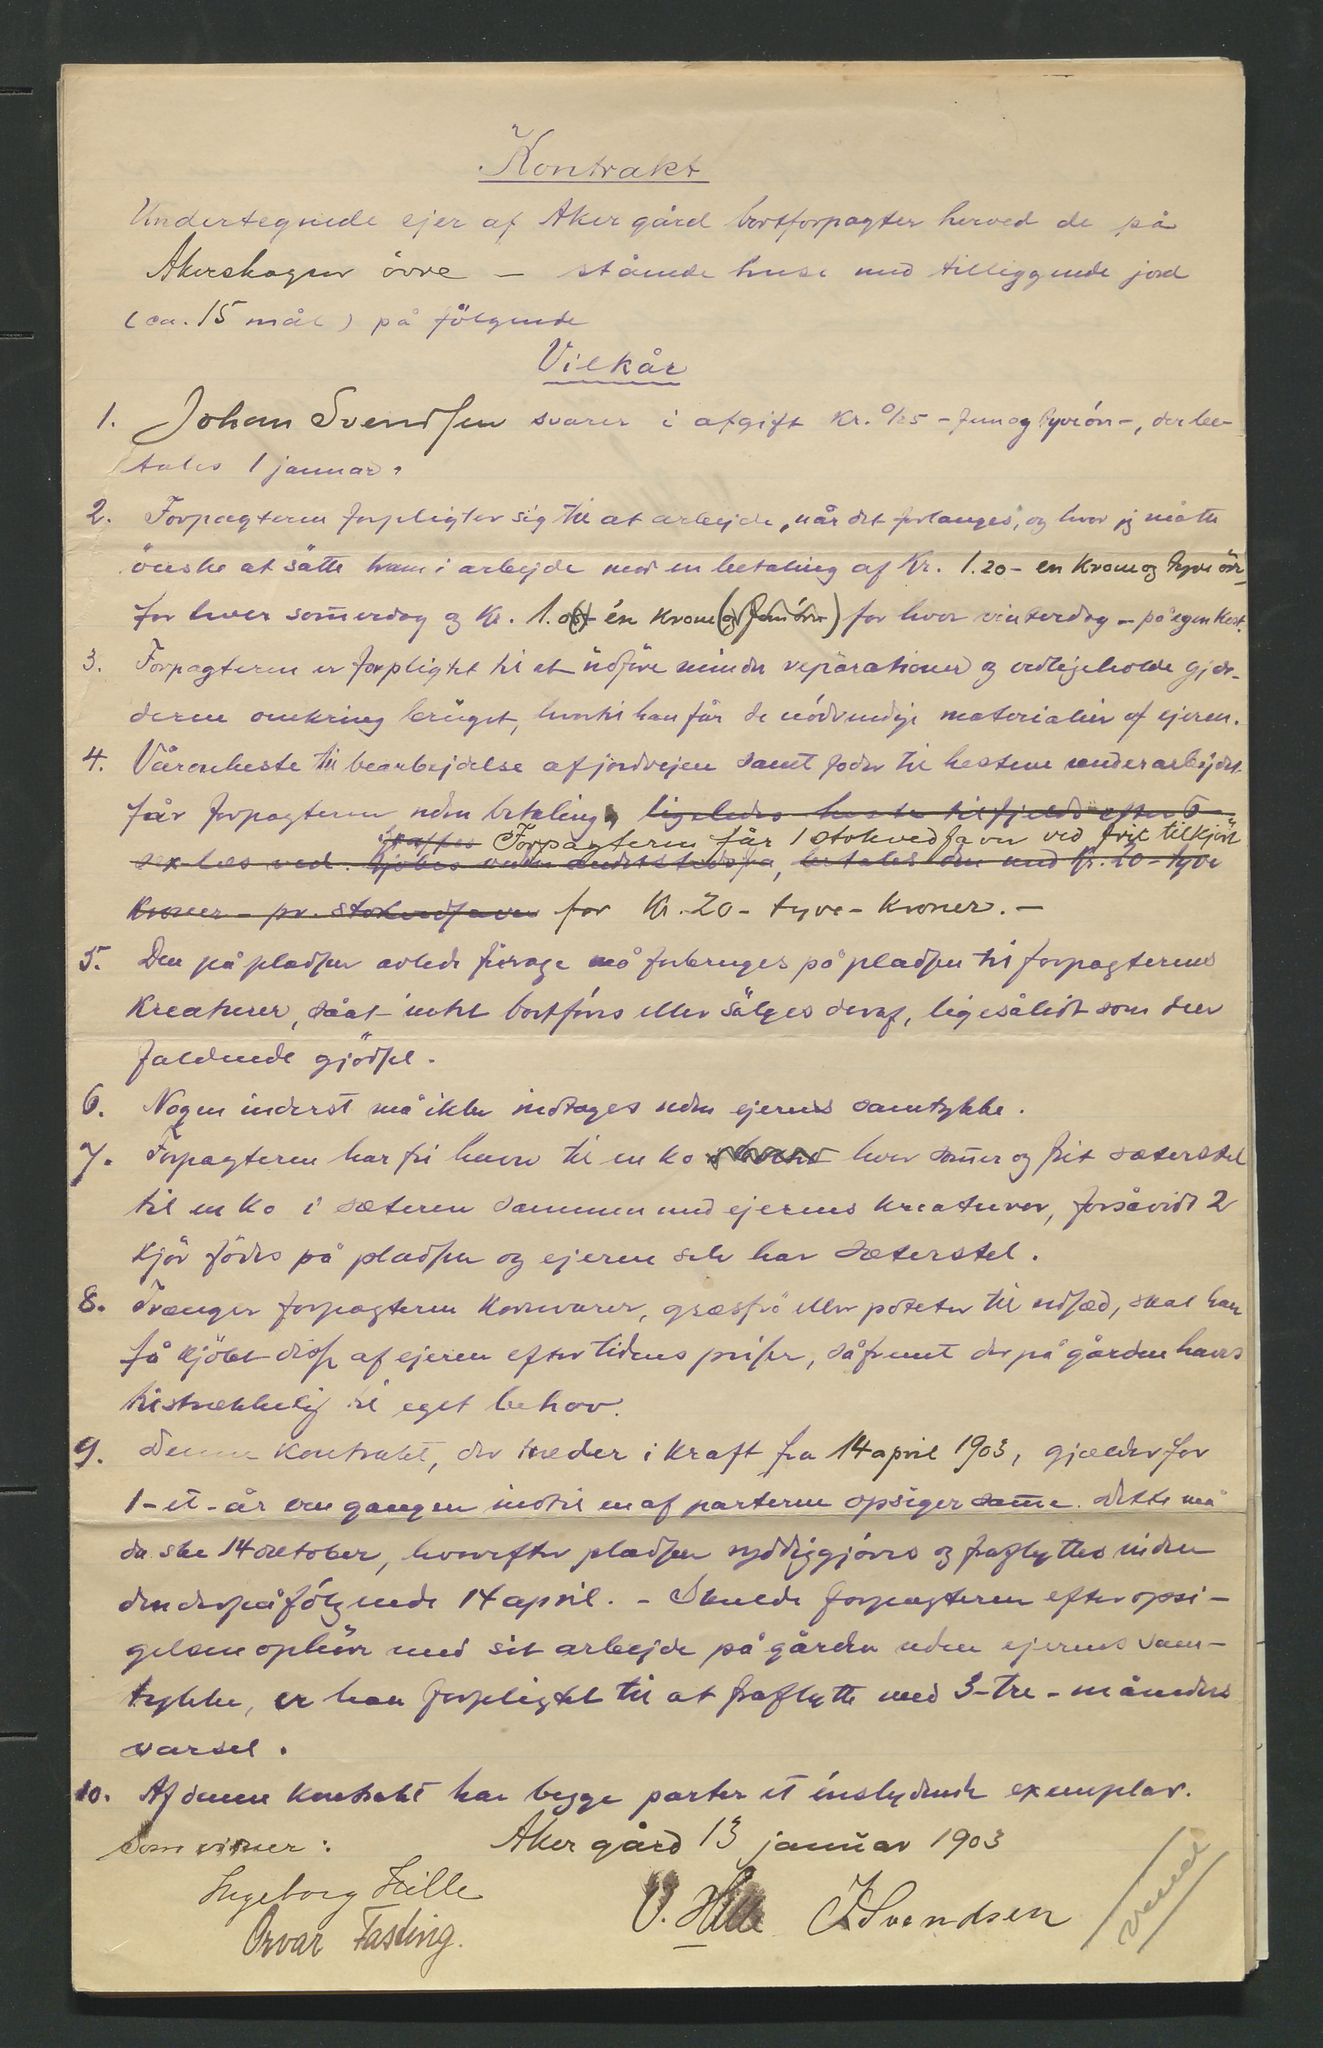 Kontrakt
Undertegnede ejer af Aker gård bortforpagter herved de på
Akerskogen övre – stående huse med tilliggende jord
(ca. 15 mål) på fölgende
Vilkår
1. Johan Svendsen svarer i afgift kr. 0/25 – fem og tyve öre –, der be-
tales 1 januar.
2. Forpagteren forpligter sig til at arbejde, når det forlanges, og hvor jeg måtte
önske at sätte ham i arbejde mod en betaling af Kr. 1.20 – en Krone og tyve öre –
for hver somerdag og Kr. 1.05 én Krone (og fem öre) for hver vinterdag – på egen kost.
3. Forpagteren er forpligtet til at udföre mindre reparationer og vedligeholde gjær-
derne omkring bruget, hvortil han får de nödvendige materialier af ejeren.
4. Våronheste til bearbejdelse af jordvejen samt foder til hestene under arbejdet
får forpagteren uden betaling, ligeledes heste tilfjelds efter 6
skaffes Forpagteren får 1 stokvedfavn ved frit tilkjört
sex læs ved. kjöbes veden andetstedsfra, betales den med Kr. 20 – tyve
Kroner – pr. stokvedfavn for Kr. 20 – tyve – Kroner. –
5. Den på pladsen avlede fôrage må forbruges på pladsen til forpagterens
Kreaturer, sået intet bortföres eller sälges deraf, ligesålidt som den
faldende gjödsel.
6. Nogen inderst må ikke indtages uden ejerens samtykke.
7. Forpagteren har fri havn til en ko hver somer og frit sæterstel
til en ko i sæteren sammen med ejerens kreaturer, forsåvidt 2
kjör födes på pladsen og ejeren selv har sæterstel.
8. Trænger forpagteren kornvarer, græsfrö eller poteter til udsæd, skal han
få kjöbt disse af ejeren efter tidens priser, såfremt der på gården haves
tilstrækkelig til eget behov.
9. Denne Kontrakt, der træder i kraft fra 14 april 1903, gjælder for
1 – et – år om gangen indtil en af parterne opsiger same. Dette må
da ske 14 oktober, hvorefter pladsen ryddiggjöres og fraflyttes inden
den derpåfölgende 14 april. – Skulde forpagteren efter opsi-
gelsen ophöre med sit arbejde på gården uden ejerens sam-
tykke, er han forpligtet til at fraflytte med 3 – tre – måneders
varsel.
10. Af denne kontrakt har begge parter et énslydende exemplar.
Som vitner: Aker gård 13 januar 1903
Ingeborg Hille
V. Hille J Svendsen
Orvar Fasting.